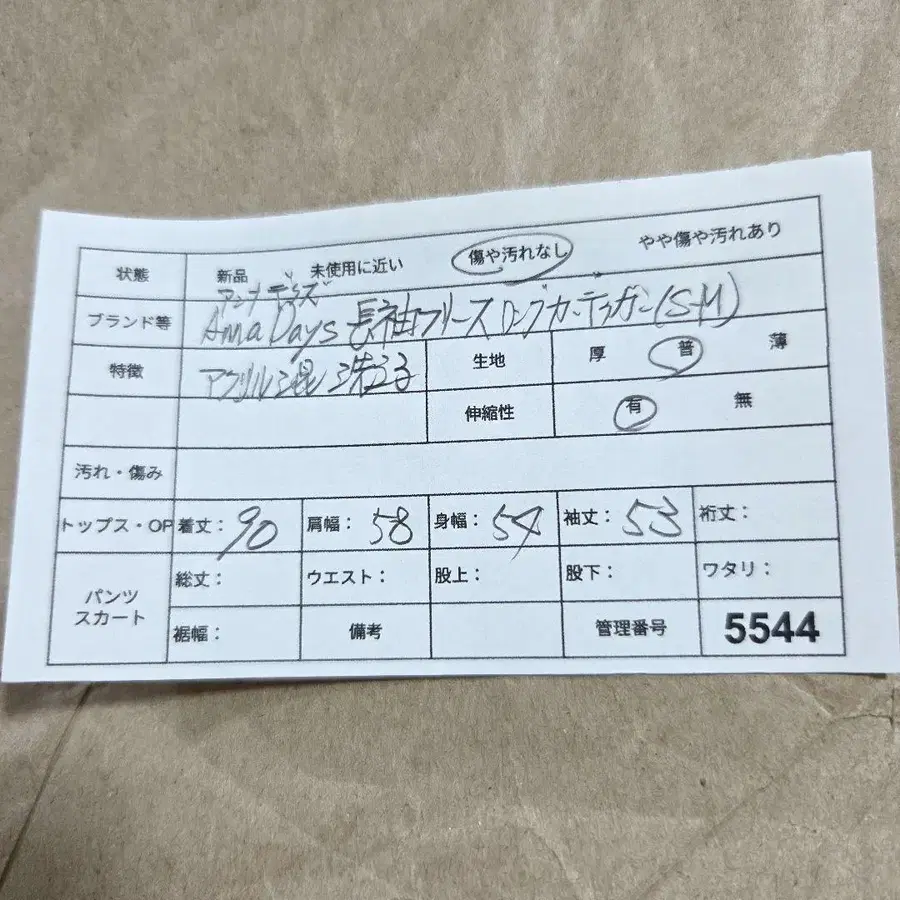 状態 新品 未使用に近い 傷や汚れなし やや傷や汚れあり
アンナデイズ
ブランド等 Anna Days 長袖フリースロングカーディガン(S-M)
特徴 アクリル混 洗える 生地 厚 普 薄
伸縮性 有 無
汚れ・傷み
トップス・OP 着丈: 90 肩幅: 58 身幅: 54 袖丈: 53 裄丈:
パンツ スカート 総丈: ウエスト: 股上: 股下: ワタリ:
裾幅: 備考 管理番号 5544